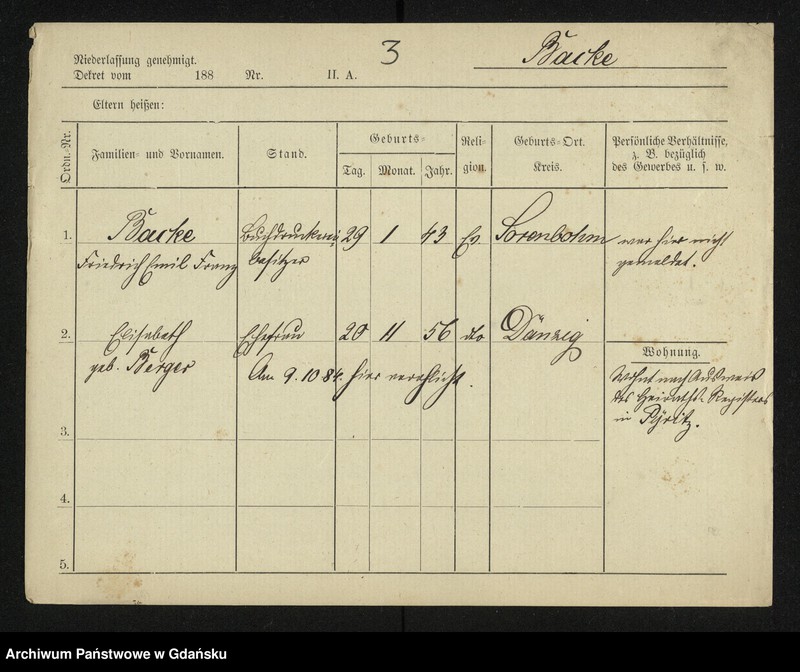 3
Backe
Niederlassung genehmigt.
Dekret vom 188 Nr. II. A.
Eltern heißen:
Ordn.-Nr.
Familien- und Vornamen.
Stand.
Geburts-
Tag. Monat. Jahr.
Reli-
gion.
Geburts-Ort.
Kreis.
Persönliche Verhältnisse,
z. B. bezüglich
des Gewerbes u. s. w.
1. Backe Buchdruckerei 29 1 43 Ev Sorenbohm war hier nicht
Friedrich Emil Franz besitzer gemeldet.
2. Elisabeth Ehefrau 20 11 56 dto Danzig
geb. Berger Am 9.10 84. hier verehlicht.
Wohnung.
Wohnt nach Ausweis
des Heiraths-Registers
in Pyritz.
3.
4.
5.
Archiwum Państwowe w Gdańsku